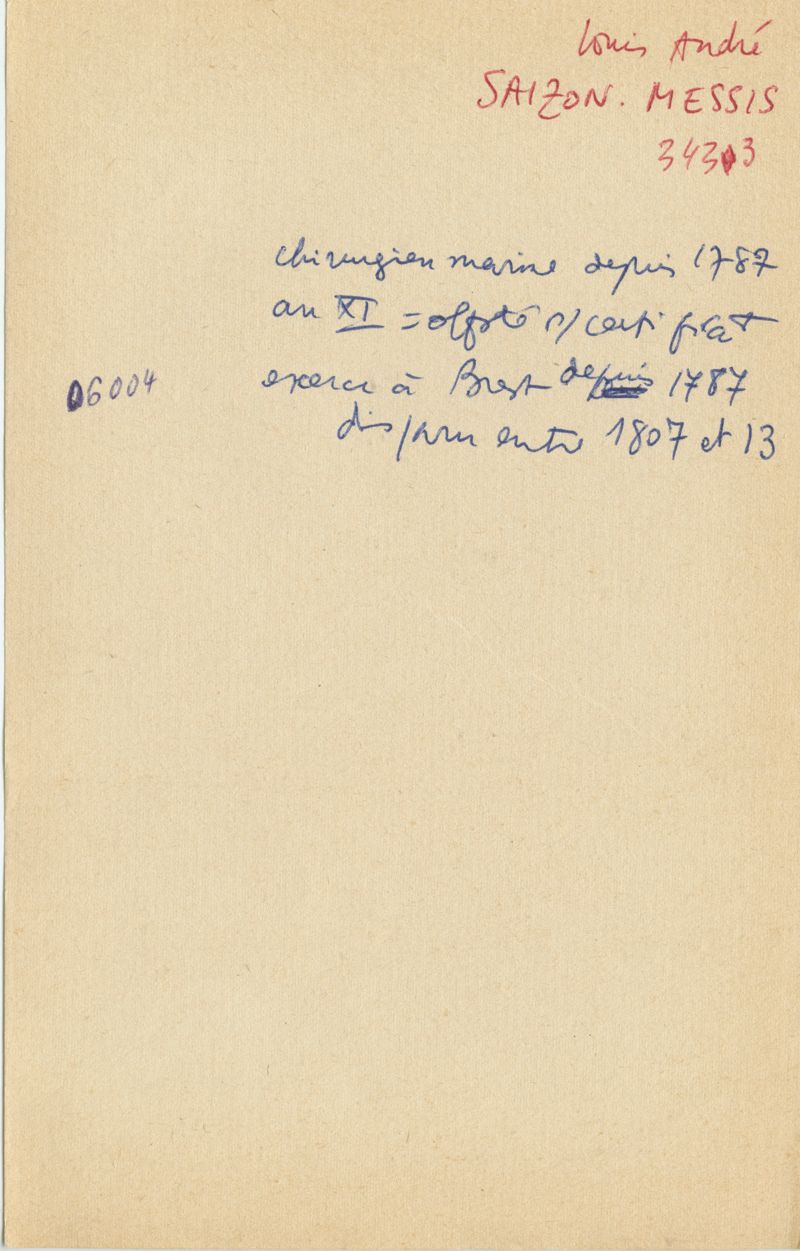 Louis André
SAIZON. MESSIS
34303
chirurgien marine depuis 1787
an XI = s/ certificat
06004
exerce à Brest depuis 1787
disparu entre 1807 et 13